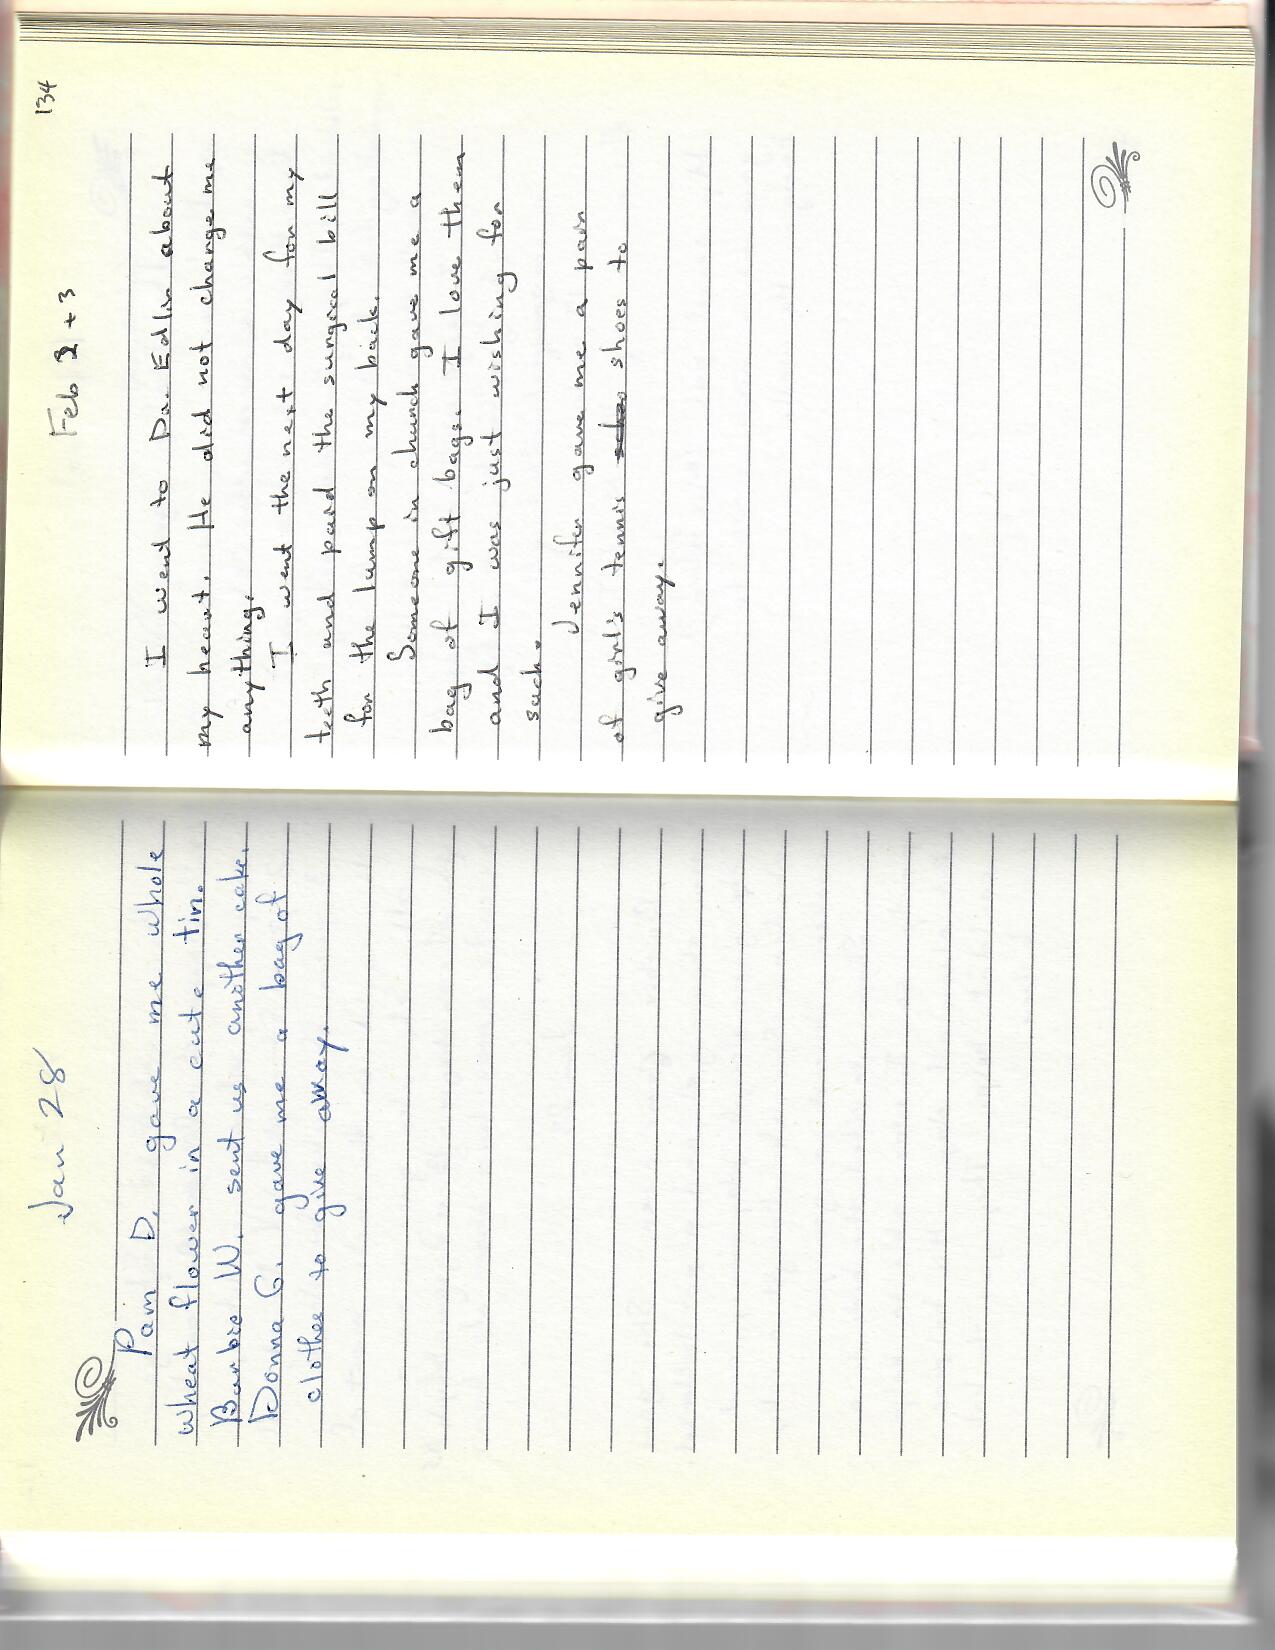 Jan 28
Pam D. gave me whole
wheat flower in a cute tin.
Barbie W. sent us another cake.
Donna G. gave me a bag of
clothes to give away.
134
Feb 2 + 3
I went to Dr. Edlin about
my heart. He did not change me
anything.
I went the next day for my
teeth and paid the surgical bill
for the lump on my back.
Someone in church gave me a
bag of gift bags. I love them
and I was just wishing for
such.
Jennifer gave me a pair
of girl's tennis shoes to
give away.